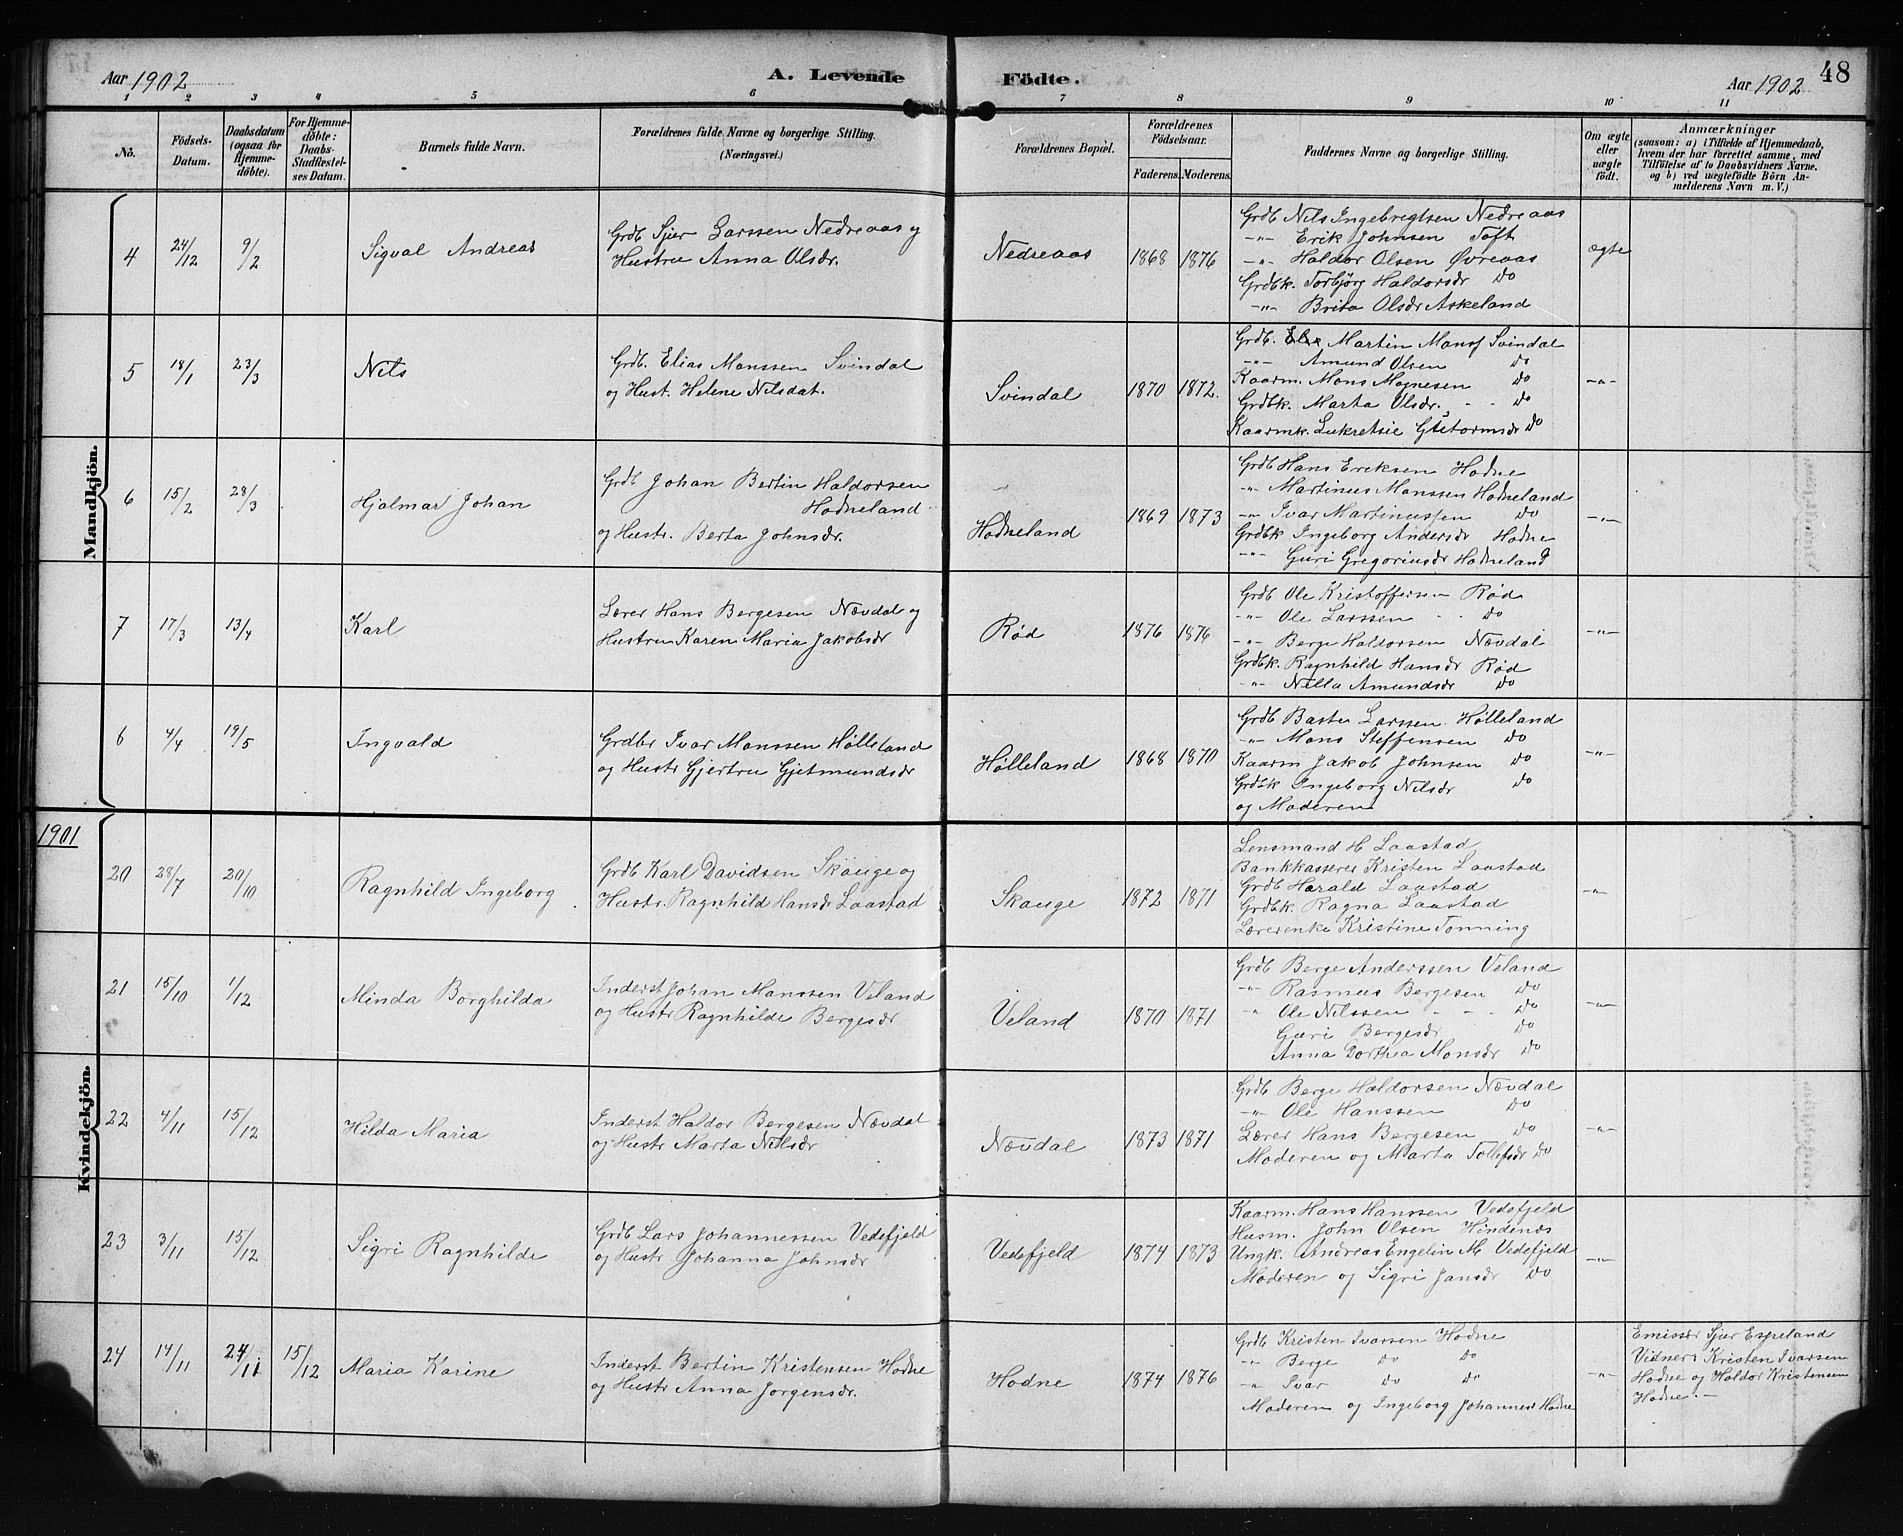 Aar 1902
A. Levende
Födte.
Aar 1902
48
1 2 3 4 5 6 7 8 9 10 11
No.
Födsels-
Datum.
Daabsdatum
(ogsaa for
Hjemme-
döbte).
For Hjemme-
döbte:
Daabs-
Stadfæstel-
ses Datum.
Barnets fulde Navn.
Forældrenes fulde Navne og borgerlige Stilling.
(Næringsvei.)
Forældrenes Bopæl.
Forældrenes
Födselsaar.
Faderens. Moderens.
Faddernes Navne og borgerlige Stilling.
Om ægte
eller
uægte
født.
Anmærkninger
(saasom: a) i Tilfælde af Hjemmedaab,
hvem der har forrettet samme, med
Tilföielse af to Daabsvidners Navne,
og b) ved uægtefödte Börn An-
melderens Navn m. V.)
Mandkjön.
4
24/12
9/2
Sigval Andreas
Grdb Sjur Larssen Nedreaas og
Hustru Anna Olsdr.
Nedreaas
1868
1876
Grdb Nils Ingebregtsen Nedreaas
-"- Erik Johnsen Toft
-"- Haldor Olsen Øvreaas
Grdbk. Torbjörg Haldorsdr Do
-"- Brita Olsdr Askeland
ægte
5
18/1
23/3
Nils
Grdb. Elias Monssen Svindal
og Hust. Helene Nilsdat.
Svindal
1870
1872.
Grdb. Martin Mons Svindal
-"- Amund Olsen Do
Kaarm. Mons Magnesen Do
Grdbk. Marta Olsdr. Do
Kaarmk. Lukretsie Guttormsdr Do
-"-
6
15/2
28/3
Hjalmar Johan
Grdb Johan Bertin Haldorsen
Hodneland
og Hustr. Berta Johnsdr.
Hodneland
1869
1873
Grdb Hans Eriksen Hodne
-"- Martinus Monssen Hodneland
-"- Ivar Martinussen Do
Grdbk Ingeborg Andersdr Hodne
-"- Guri Gregoriusdr Hodneland
-"-
7
17/3
13/4
Karl
Lærer Hans Bergesen Nævdal og
Hustru Karen Maria Jakobsdr
Rød
1876
1876
Grdb Ole Kristoffersen Rød
-"- Ole Larssen Do
-"- Berge Haldorsen Nævdal
Grdbk. Ragnhild Hansdr Rød
-"- Nilla Amundsdr Do
-"-
6
4/4
19/5
Ingvald
Grdbr Ivar Monssen Hølleland
og Hustr Gjertru Gjetmundsdr
Hølleland
1868
1870
Grdb Baste Larssen Hølleland
-"- Mons Steffensen Do
Kaarm Jakob Johnsen Do
Grdbk Ingeborg Nilsdr Do
og Moderen
-"-
1901
Kvindekjön.
20
28/7
20/10
Ragnhild Ingeborg
Grdb Karl Davidsen Skauge og
Hustr. Ragnhild Hansdr Laastad
Skauge
1872
1871
Lensmand H Laastad
Bankkasserer Kristen Laastad
Grdb Harald Laastad
Grdbk. Ragna Laastad
Lærerenke Kristine Tonning
-"-
21
15/10
1/12
Minda Borghilda
Inderst Johan Monssen Veland
og Hustr Ragnhilde Bergesdr
Veland
1870
1871
Grdb Berge Anderssen Veland
-"- Rasmus Bergesen Do
" Ole Nilssen Do
Guri Bergesdr Do
Anna Dorthea Monsdr Do
-"-
22
4/11
15/12
Hilda Maria
Inderst Haldor Bergesen Nævdal
og Hustr Marta Nilsdr
Nævdal
1873
1871
Grdb Berge Haldorsen Nævdal
-"- Ole Hanssen Do
Lærer Hans Bergesen Do
Moderen og Marta Tollefsdr Do
-"-
23
3/11
15/12
Sigri Ragnhilde
Grdb Lars Johannessen Vedefjeld
og Hustr Johanna Johnsdr
Vedefjeld
1874
1873
Kaarm. Hans Hanssen Vedefjeld
Husm. John Olsen Hindenes
Ungk. Andreas Engelin M Vedefjeld
Moderen og Sigri Jansdr Do
-"-
24
14/11
24/11
15/12
Maria Karine
Inderst Bertin Kristensen Hodne
og Hustr Anna Jørgensdr.
Hodne
1874
1876
Grdb Kristen Ivarsen Hodne
" Berge Do Do
" Ivar Do Do
Moderen og Ingeborg Johannesd Hodne
-"-
Emissær Sjur Espeland
Vidner Kristen Ivarsen
Hodne og Haldor Kristensen
Hodne.-